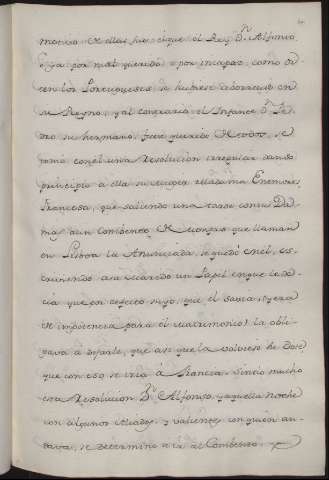 moria de ellas fue elque el Rey Dn. Alfonso
o ya por mal querido o por incapaz, como di
cen los Portugueses se hubiese aborrecido en
su Reyno, y al contrario el Infante Dn. Pe
dro su hermano, fuese querido de todos, se
tomo con el una Resolucion irregular dando
principio a ella su muger Madama Enemours
Francesa, que saliendo una tarde con sus Da
mas a un Combento de Monjas que llaman
en Lisboa la Anunciada, se quedó en el, es
criviendo a su marido un Papel en que le de
cia que un defecto suyo, que el savia, y era
de impotencia para el matrimonio la obli
gava a dejarle, que asi que la volviese he Dote
que con eso se iria a Francia. Sintio mucho
esta Resolucion Dn. Alfonso, y aquella noche
con algunos Criados, y valientes con quien an
dava, se determino a ir al Combento.